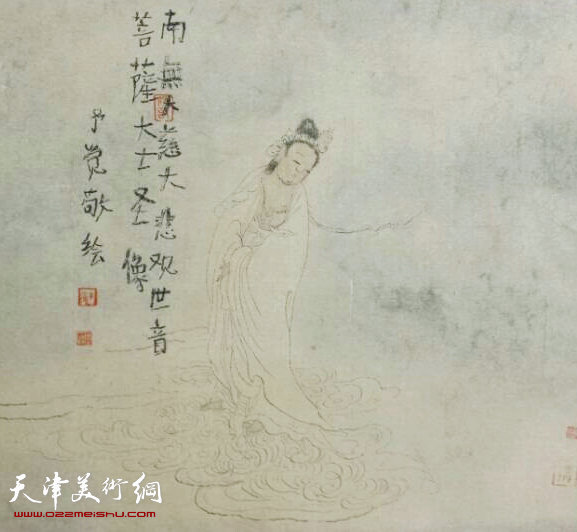 南無大慈大悲观世音
菩薩大士圣像
予觉敬绘
天津美術網
www.022meishu.com